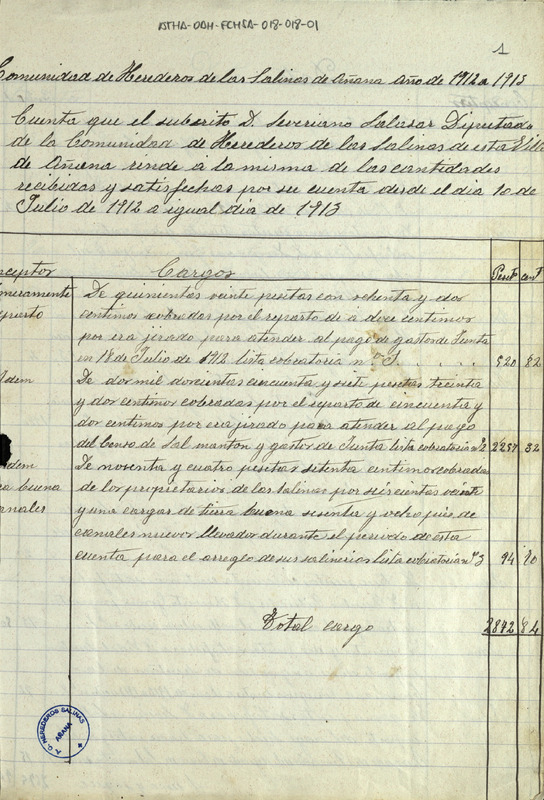 ATHA-DAH-FCHSA-018-018-01
1
Comunidad de Herederos de las Salinas de Añana año de 1912 a 1913
Cuenta que el subscrito D. Severiano Salazar Diputado
de la Comunidad de Herederos de las Salinas de esta Villa
de Añana rinde á la misma de las cantidades
recibidas y satisfechas por su cuenta desde el dia 10 de
Julio de 1912 a igual dia de 1913
nceptos Cargos Peset cent
meramente De quinientas veinte pesetas con ochenta y dos
eparto centimos cobradas por el reparto de a doce centimos
por era jirado para atender al pago de gastos de Junta
en 18 de Julio de 1912 lista cobratoria nº 1 520 82
Idem De dos mil doscientas cincuenta y siete pesetas treinta
y dos centimos cobradas por el reparto de cincuenta y
dos centimos por era jirado para atender al pago
del Censo de Sal manton y gastos de Junta lista cobratoria nº 2 2257 32
dem De nosenta y cuatro pesetas setenta centimos cobradas
ra buena de los propietarios de las Salinas por seiscientas veinte
anales y una cargas de tierra buena sesenta y ocho pies de
canales nuevos llevados durante el periodo de esta
cuenta para el arreglo de sus salinerios lista cobratoria nº 3 94 70
Total cargo 2872 84
A. C. HEREDEROS SALINAS
AÑANA